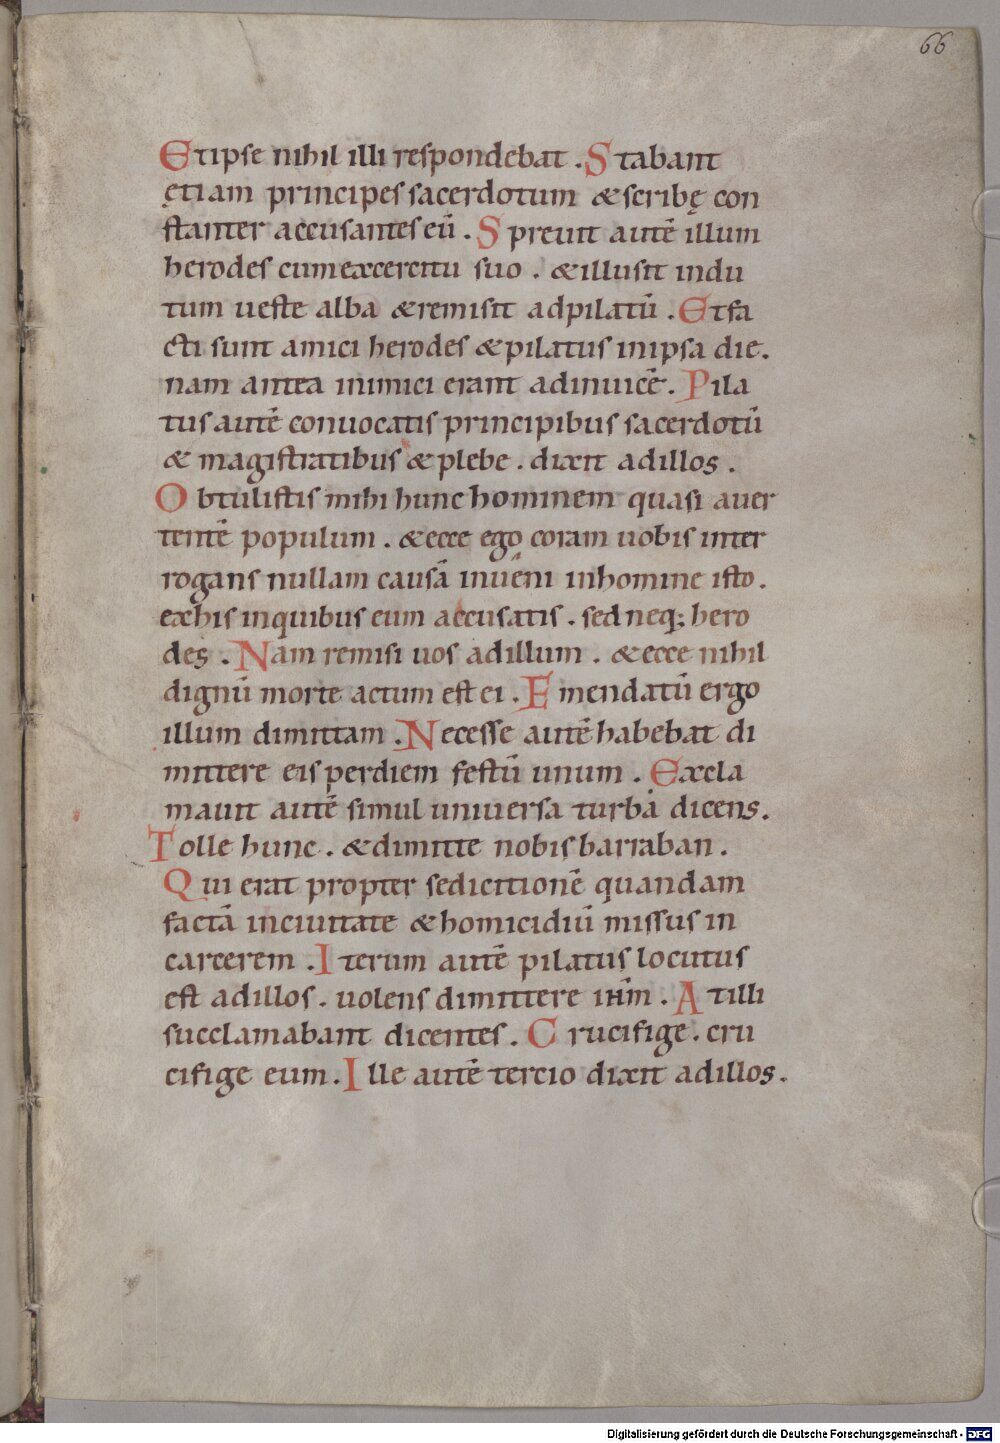 66
Et ipse nihil illi respondebat . Stabant
ętiam principes sacerdotum & scribę con
stanter accusantes eū . Spreuit autē illum
herodes cum excercitu suo . & illusit indu
tum ueste alba & remisit ad pilatū . Et fa
cti sunt amici herodes & pilatus in ipsa die.
nam antea inimici erant ad inuicē . Pila
tus autē conuocatis principibus sacerdotū
& magistratibus & plebe . dixit ad illos .
Obtulistis mihi hunc hominem quasi auer
tentē populum . & ecce ego coram uobis inter
rogans nullam causā inueni in homine isto .
ex his in quibus eum accusatis . sed neq; hero
des . Nam remisi uos ad illum . & ecce nihil
dignū morte actum est ei . Emendatū ergo
illum dimittam . Necesse autē habebat di
mittere eis per diem festū unum . Excla
mauit autē simul uniuersa turba dicens.
Tolle hunc . & dimitte nobis barraban .
Qui erat propter sedicitionē quandam
factā in ciuitate & homicidiū missus in
carcerem . Iterum autē pilatus locutus
est ad illos . uolens dimittere ihm̄ . At illi
succlamabant dicentes . Crucifige . cru
cifige eum . Ille autē tercio dixit ad illos .
Digitalisierung gefördert durch die Deutsche Forschungsgemeinschaft - DFG